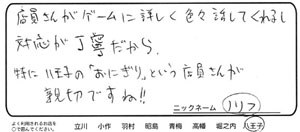 店員さんがゲームに詳しく色々話してくれるし
対応が丁寧だから。
特に八王子の「おにぎり」という店員さんが
親切ですね!!
ニックネーム ノリフ
よく利用されるお店を
○で囲んでください。
立川 小作 羽村 昭島 青梅 高幡 堀之内 八王子